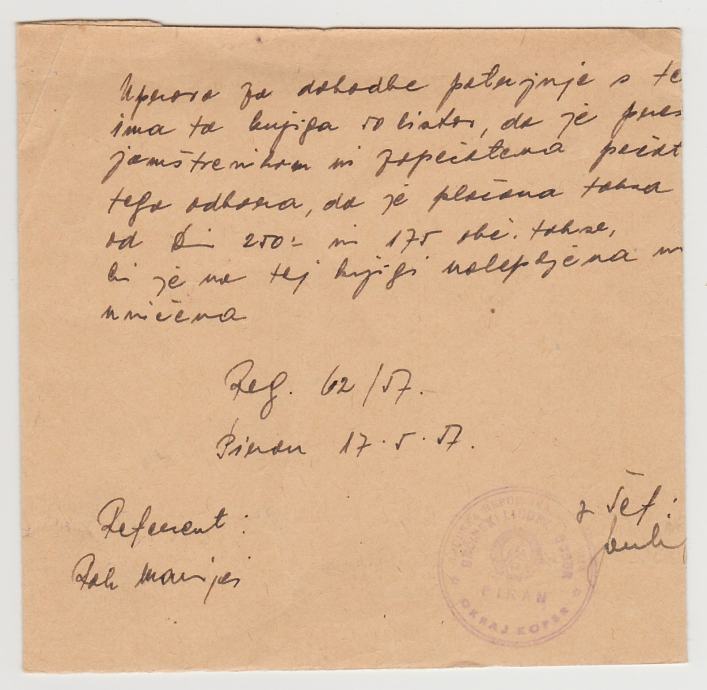 Uprava za dohodke potrjuje s te
ima ta knjiga 50 listov, da je pres
jamstvenikom in zapečatena pečat
tega odbora, da je plačana taksa
od Din 250.- in 175 obč. takse,
ki je na tej knjigi nalepljena in
uničena
Reg. 62/57.
Piran 17.5.57.
Referent:
z Šef:
OBČINSKI LJUDSKI ODBOR
PIRAN
OKRAJ KOPER